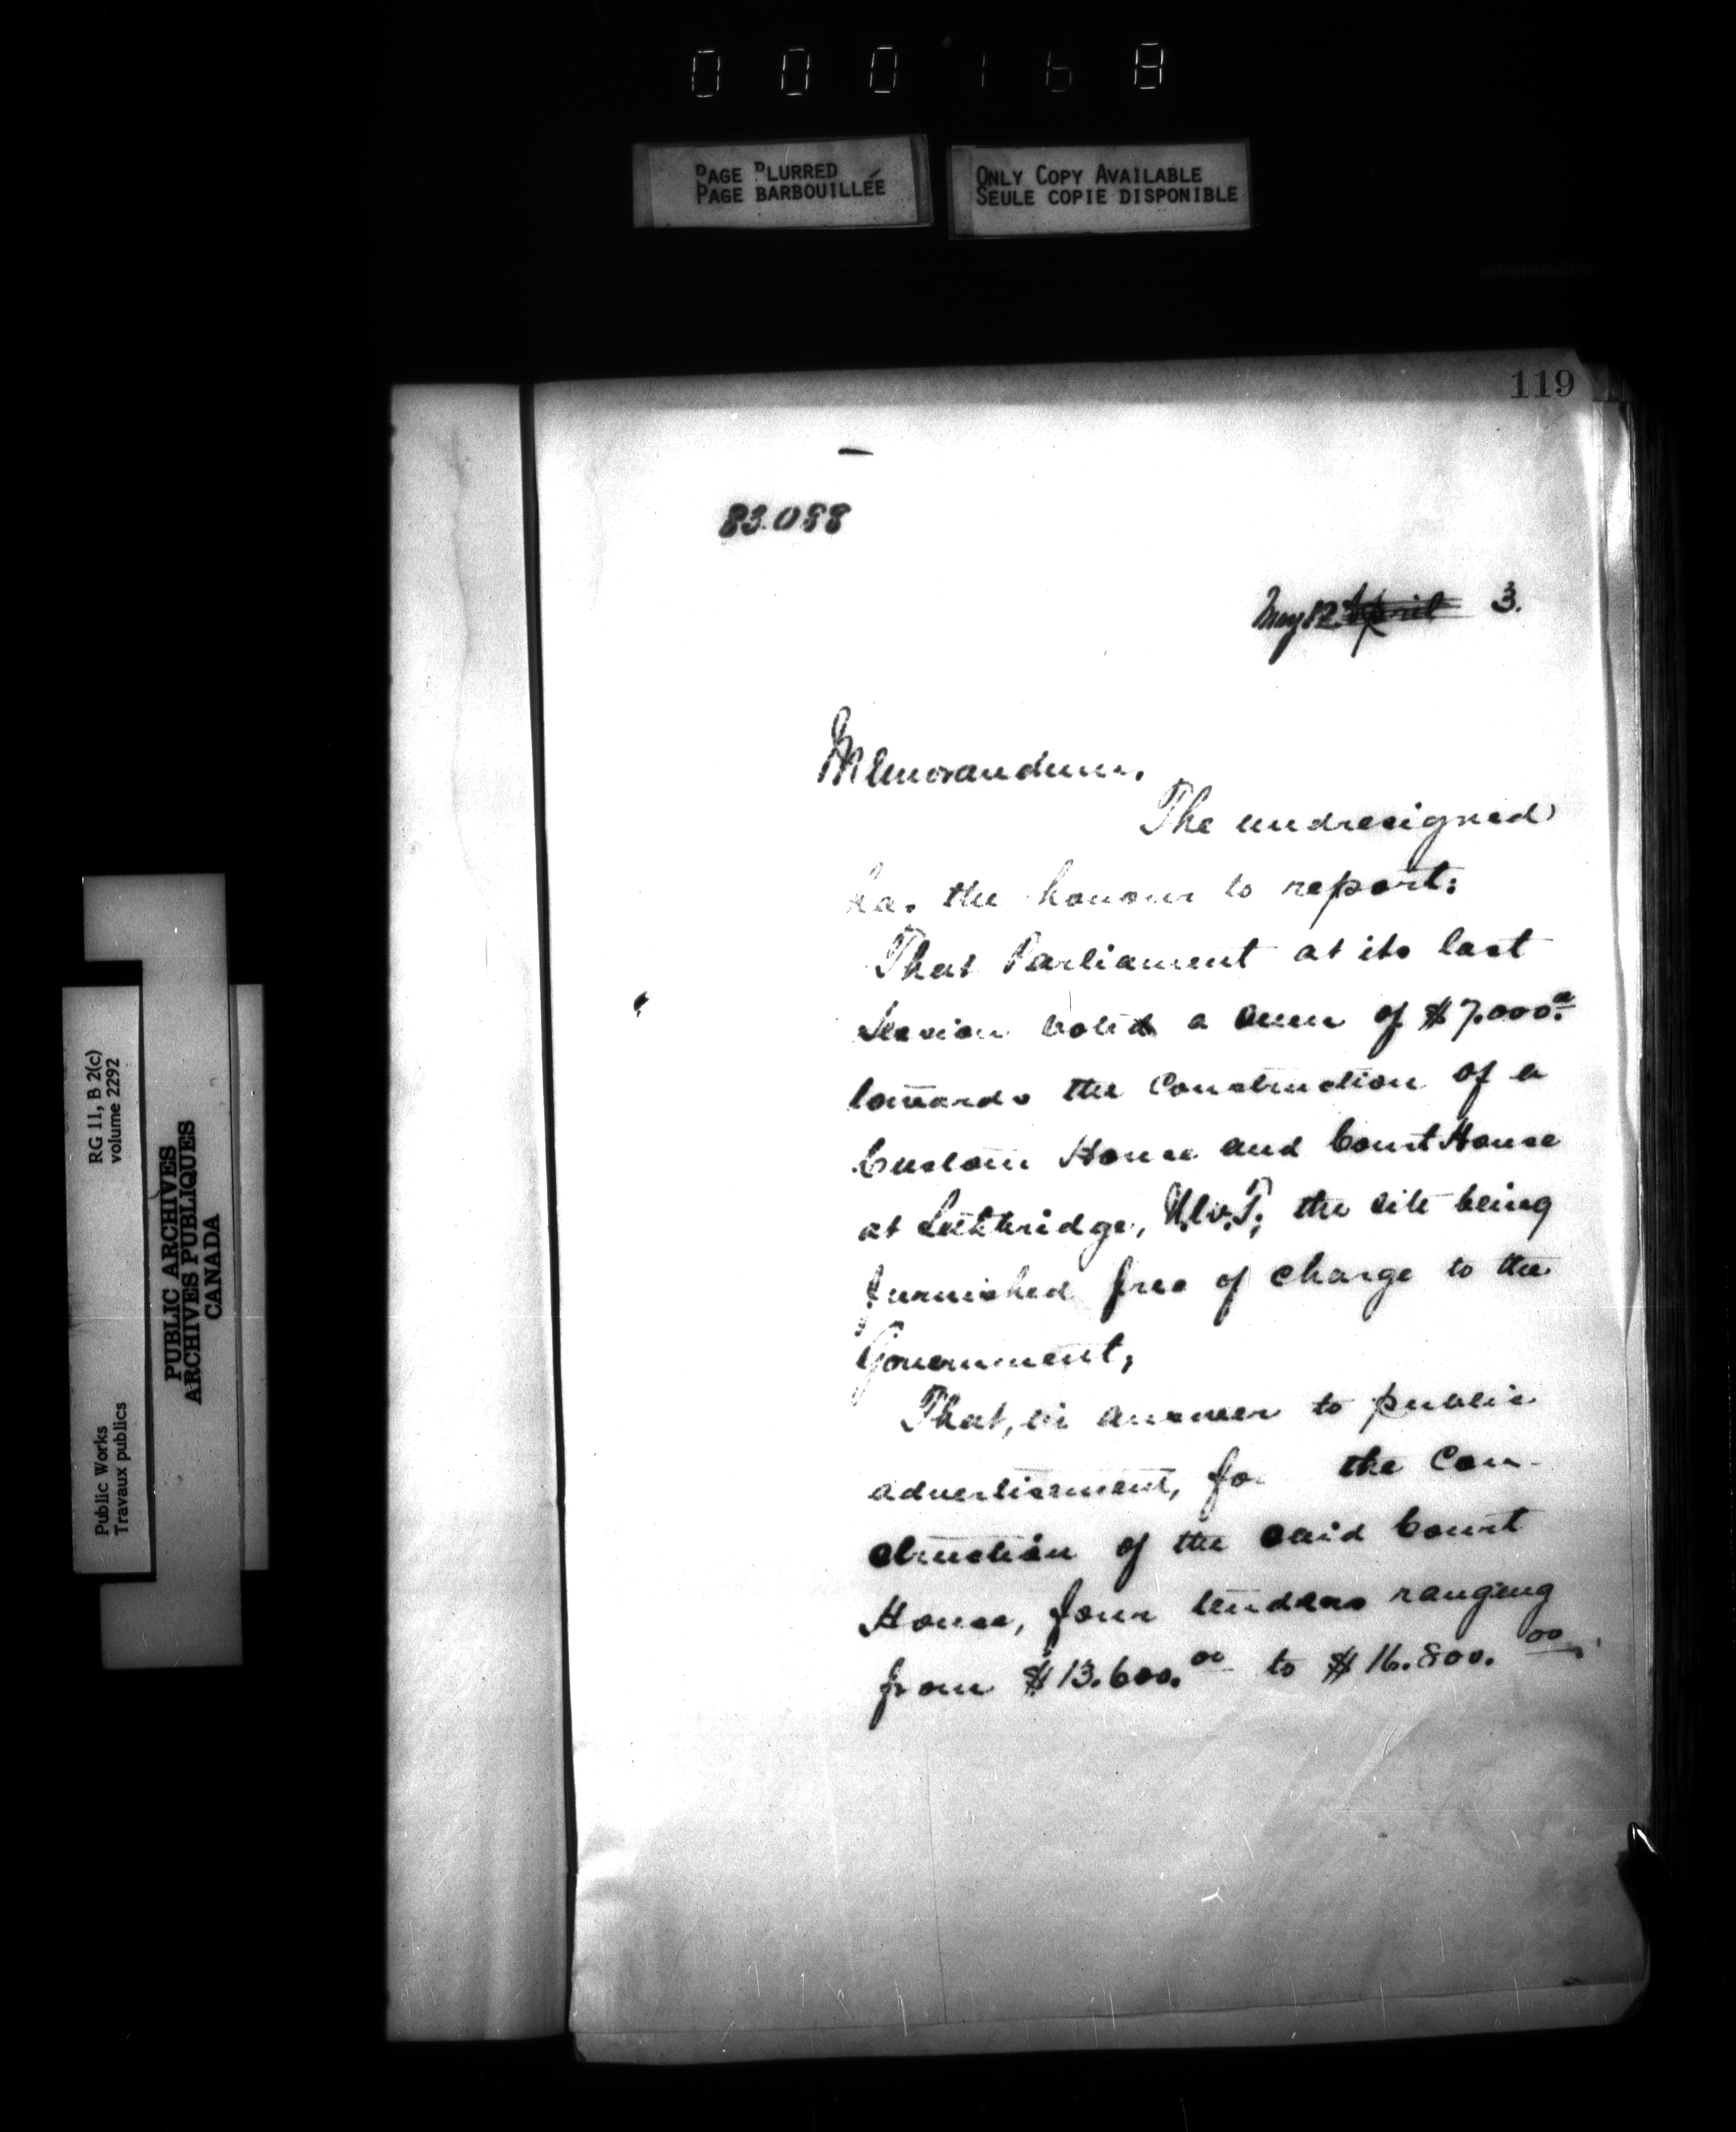 000168
PAGE BLURRED
PAGE BARBOUILLÉE
ONLY COPY AVAILABLE
SEULE COPIE DISPONIBLE
119
83.088
May 12 April 3.
Memorandum.
The undresigned
has the honour to report:
That Parliament at its last
Session voted a sum of $7.000.00
towards the Construction of a
Custom House and Court House
at Lethbridge, N.W.T; the site being
furnished free of charge to the
Government;
That, in answer to public
advertisement, for the Con-
struction of the said Court
House, four tenders ranging
from $13.600.00 to $16.800.00,
RG 11, B 2(c)
volume 2292
PUBLIC ARCHIVES
ARCHIVES PUBLIQUES
CANADA
Public Works
Travaux publics